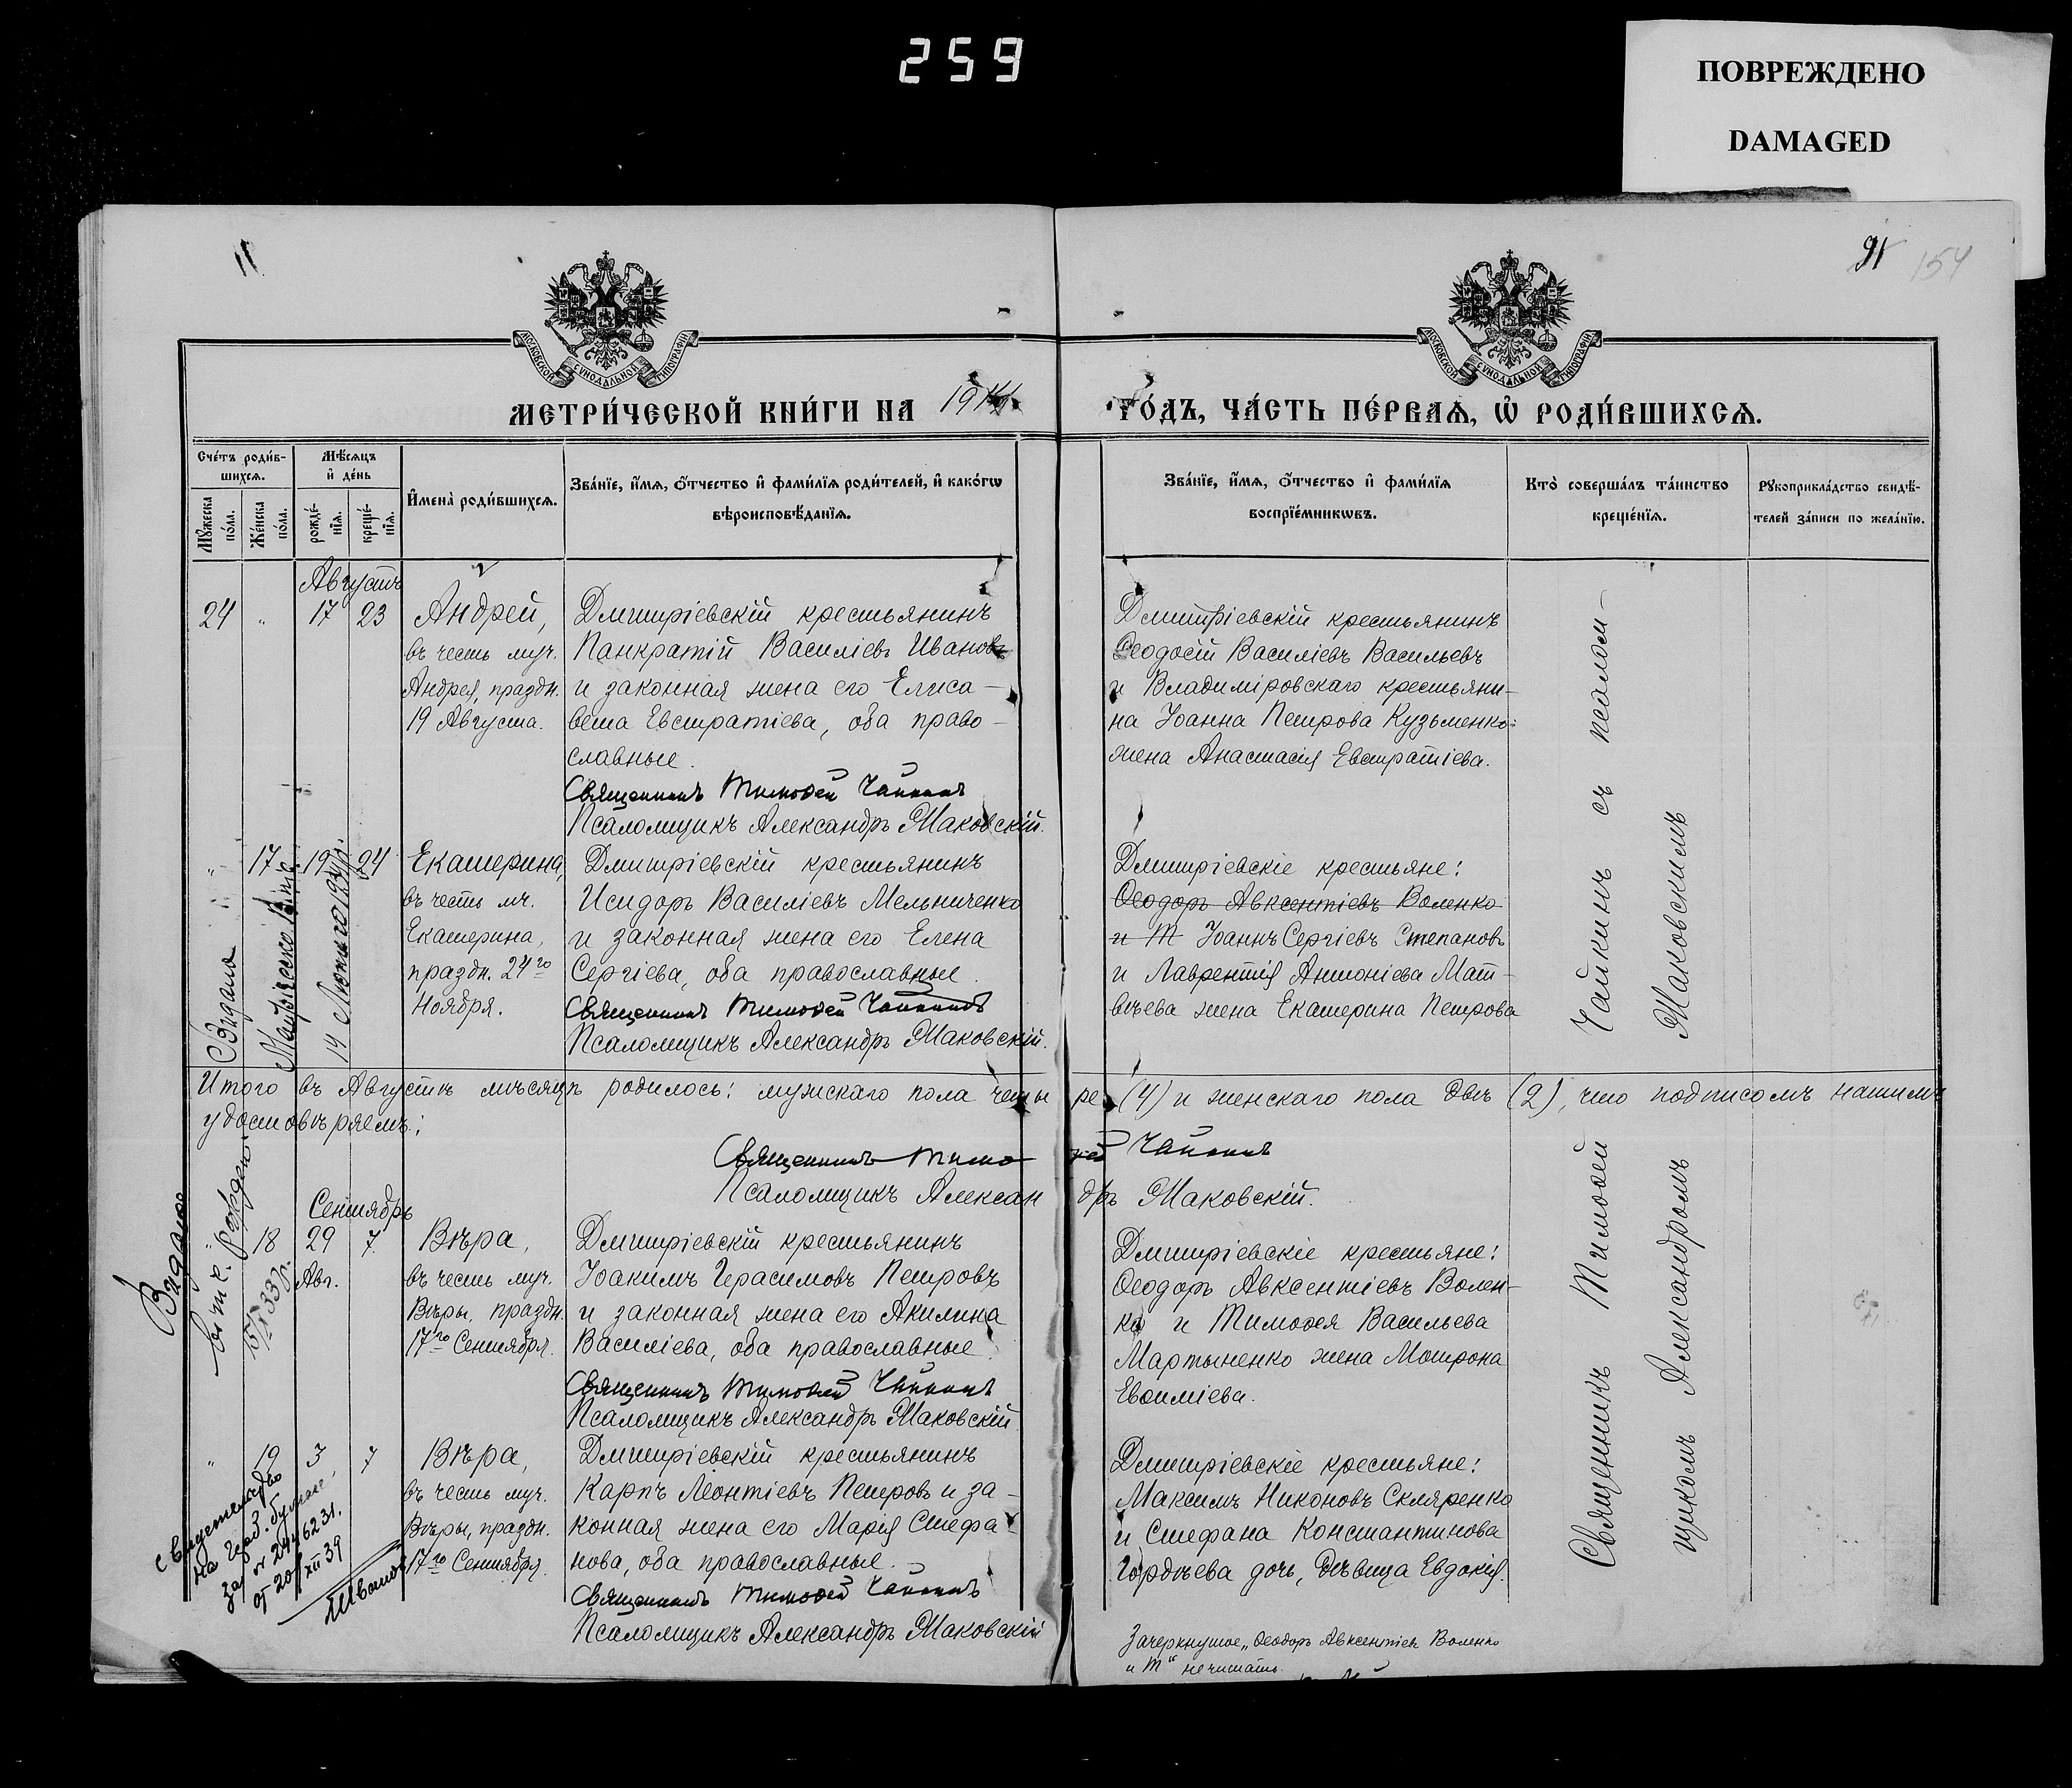 259
ПОВРЕЖДЕНО
DAMAGED
11
91
154
МОСКОВСКОЙ СѴНОДАЛЬНОЙ ТИПОГРАФІИ
МОСКОВСКОЙ СѴНОДАЛЬНОЙ ТИПОГРАФІИ
МЕТРИ́ЧЕСКОЙ КНИ́ГИ НА 1914
ГО́ДЪ, ЧА́СТЬ ПЕ́РВАѦ, Ѡ҆ РОДИ́ВШИХСѦ.
Сче́тъ роди́в-
шихсѧ.
Мꙋ́жеска по́ла.
Же́нска по́ла.
Мѣ́сѧцъ
и҆ де́нь
рожде́-
нїѧ.
креще́-
нїѧ.
И҆мена̀ роди́вшихсѧ.
Зва́нїе, и҆́мѧ, ѻ҆́тчество и҆ фами́лїѧ роди́телей, и҆ како́гѡ
вѣроисповѣ́данїѧ.
Зва́нїе, и҆́мѧ, ѻ҆́тчество и҆ фами́лїѧ
воспрїе́мникѡвъ.
Кто̀ соверша́лъ та́инство
креще́нїѧ.
Рꙋкоприкла́дство свидѣ́-
телей за́писи по жела́нїю.
Августъ
24 " 17 23
Андрей,
въ честь муч.
Андрея, праздн.
19 Августа.
Дмитріевскій крестьянинъ
Панкратій Василіевъ Ивановъ
и законная жена его Елиса-
вета Евстратіева, оба право-
славные.
Священникъ Тимоѳей Чайкинъ
Псаломщикъ Александръ Маковскій.
Дмитріевскій крестьянинъ
Ѳеодосій Василіевъ Васильевъ
и Владиміровскаго крестьяни-
на Іоанна Петрова Кузьменко:
жена Анастасія Евстратіева.
" 17 19 24
Екатерина,
въ честь мч.
Екатерина,
праздн. 24го
Ноября.
Дмитріевскій крестьянинъ
Исидоръ Василіевъ Мельниченко
и законная жена его Елена
Сергіева, оба православные.
Священникъ Тимоѳей Чайкинъ
Псаломщикъ Александръ Маковскій.
Дмитріевскіе крестьяне:
Ѳеодоръ Авксентіевъ Воленко
и Т Іоаннъ Сергіевъ Степановъ
и Лаврентія Антоніева Мат-
вѣева жена Екатерина Петрова
Видано
Итого въ Августѣ мѣсяцѣ родилось: мужскаго пола четы ре (4) и женскаго пола двѣ (2), что подписомъ нашимъ
удостовѣряемъ:
Священникъ Тимо ѳей Чайкинъ
Псаломщикъ Алексан дръ Маковскій.
Сентябрь
" 18 29 7
Авг.
Вѣра,
въ честь муч.
Вѣры, праздн.
17го Сентября.
Дмитріевскій крестьянинъ
Іоакимъ Герасимовъ Петровъ
и законная жена его Акилина
Василіева, оба православные.
Священникъ Тимоѳей Чайкинъ
Псаломщикъ Александръ Маковскій
Дмитріевскіе крестьяне:
Ѳеодоръ Авксентіевъ Волен-
ко и Тимоѳея Васильева
Мартыненко жена Мотрона
Евѳиміева.
Видано
" 19 3 7
Вѣра,
въ честь муч.
Вѣры, праздн.
17го Сентября.
Дмитріевскій крестьянинъ
Карпъ Леонтіевъ Петровъ и за-
конная жена его Марія Стефа-
нова, оба православные.
Священникъ Тимоѳей Чайкинъ
Псаломщикъ Александръ Маковскій
Дмитріевскіе крестьяне:
Максимъ Никоновъ Скляренко
и Стефана Константинова
Гордѣева дочь, дѣвица Евдокія.
Священникъ Тимоѳей Чайкинъ съ псалом-
щикомъ Александромъ Маковскимъ
от 20/XII 39
Иванов
Зачеркнутое "Ѳеодоръ Авксентіев Воленко
и Т" не читать.